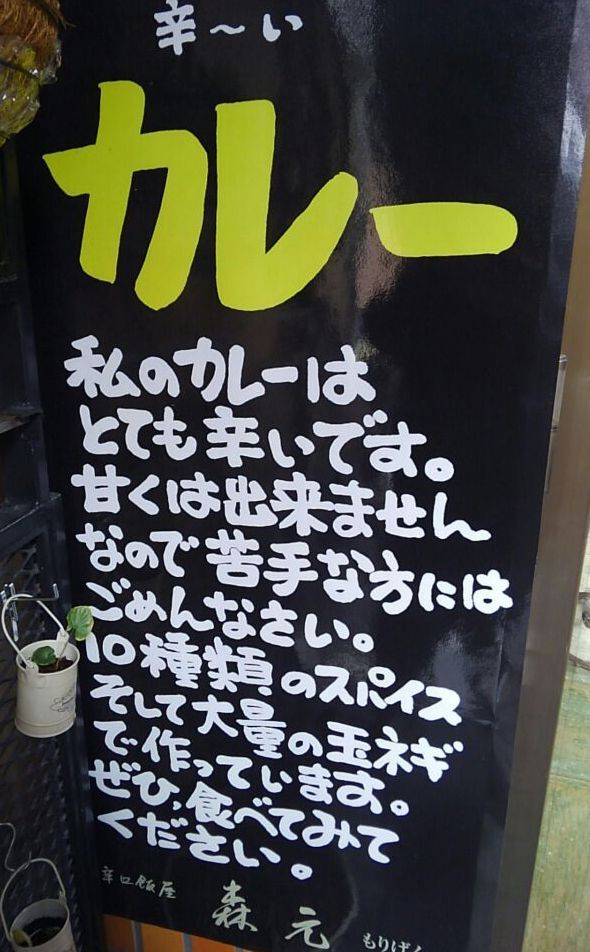 辛〜い
カレー
私のカレーは
とても辛いです。
甘くは出来ません
なので苦手な方には
ごめんなさい。
10種類のスパイス
そして大量の玉ネギ
で作っています。
ぜひ、食べてみて
ください。
辛口飯屋 森元 もりげん